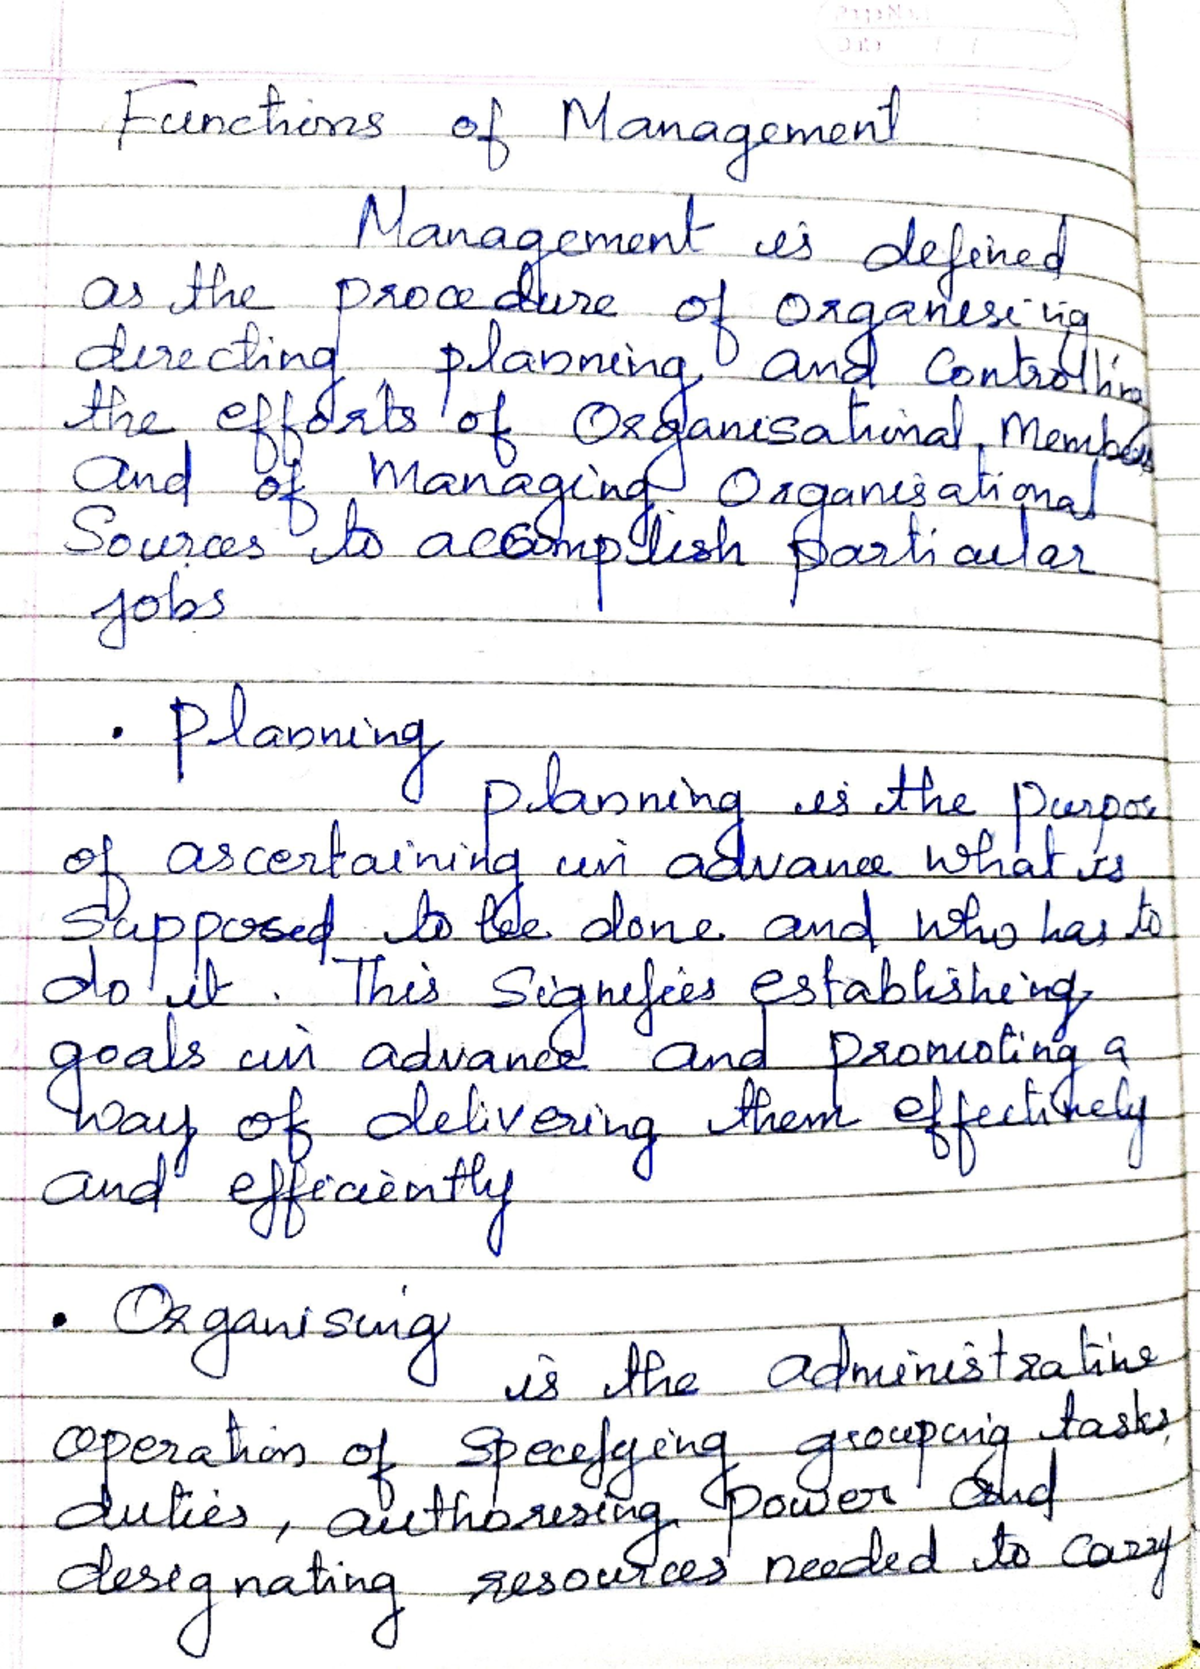 Functions of Management
Management is defined
as the procedure of organising
directing planning and Controlling
the efforts of Organisational Members
and of Managing Organisational
Sources to accomplish particular
jobs
• Planning
Planning is the purpose
of ascertaining in advance what is
supposed to be done and who has to
do it. This Signifies establishing
goals in advance and promoting a
way of delivering them effectively
and efficiently
• Organising
is the administrative
operation of specifying grouping tasks,
duties, authorising power and
designating resources needed to carry